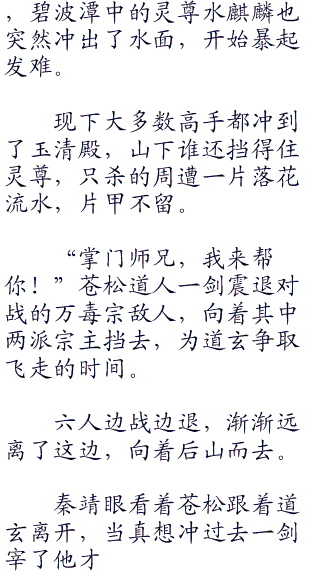 ，碧波潭中的灵尊水麒麟也
突然冲出了水面，开始暴起
发难。
现下大多数高手都冲到
了玉清殿，山下谁还挡得住
灵尊，只杀的周遭一片落花
流水，片甲不留。
“掌门师兄，我来帮
你！”苍松道人一剑震退对
战的万毒宗敌人，向着其中
两派宗主挡去，为道玄争取
飞走的时间。
六人边战边退，渐渐远
离了这边，向着后山而去。
秦靖眼看着苍松跟着道
玄离开，当真想冲过去一剑
宰了他才